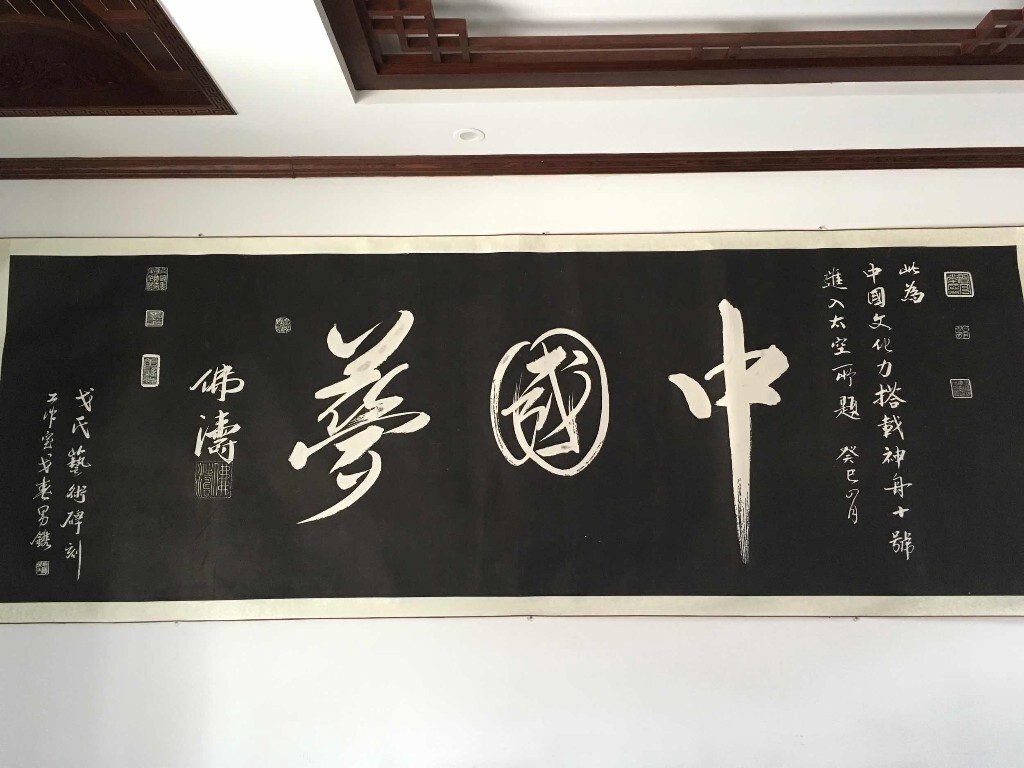 此為
中國文化力搭載神舟十號
進入太空所題 癸巳四月
中國夢
佛濤
戈氏藝術碑刻
工作室戈春男鐫